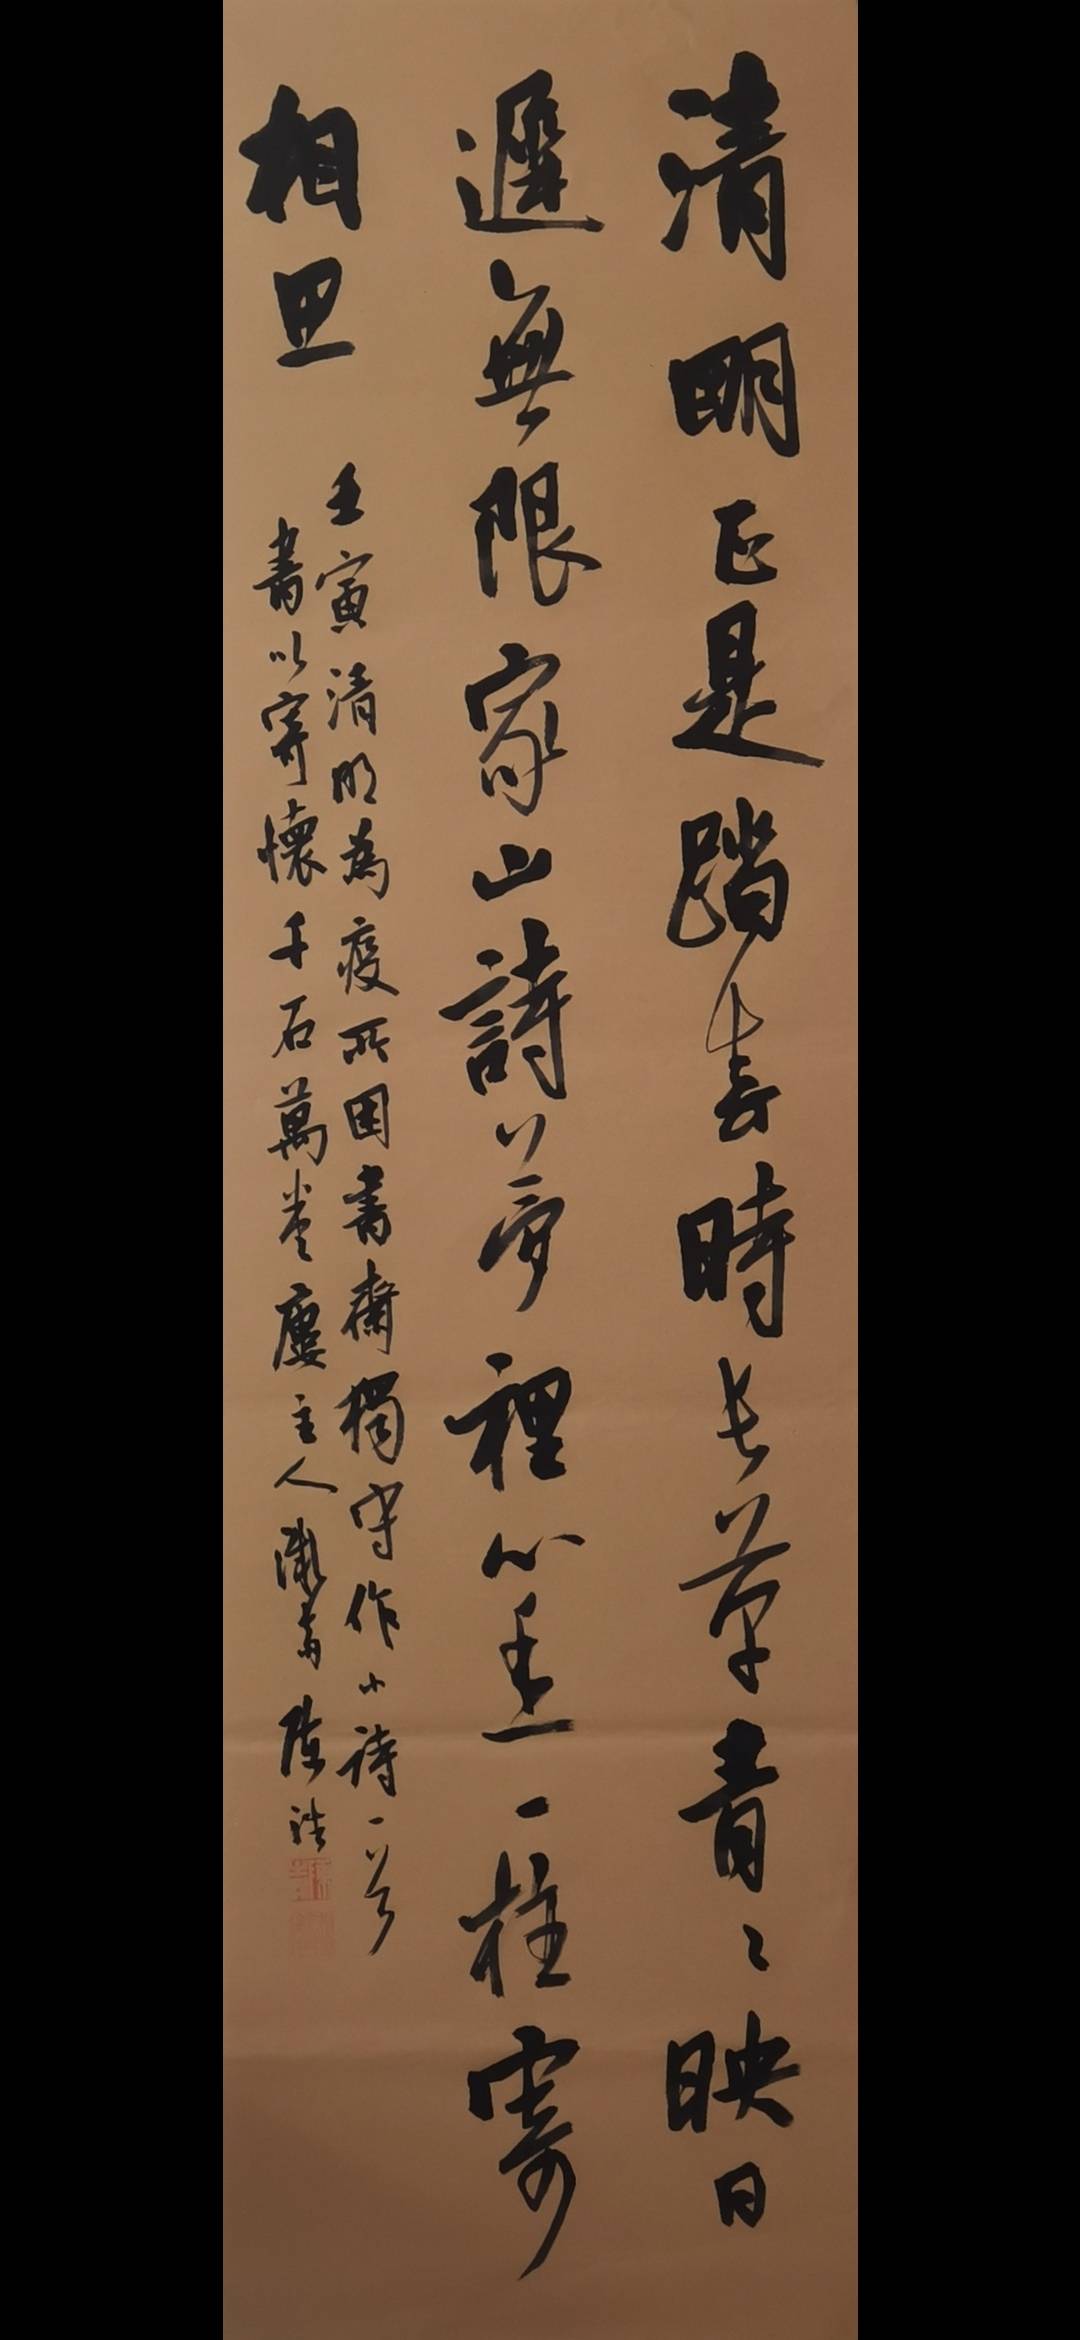 清明正是踏春時长草青〻映日
遲無限家山詩夢裡心香一柱寄
相思
壬寅清明為疫所困書齋獨守作小詩一首
書以寄懷千石萬卷廔主人 陳